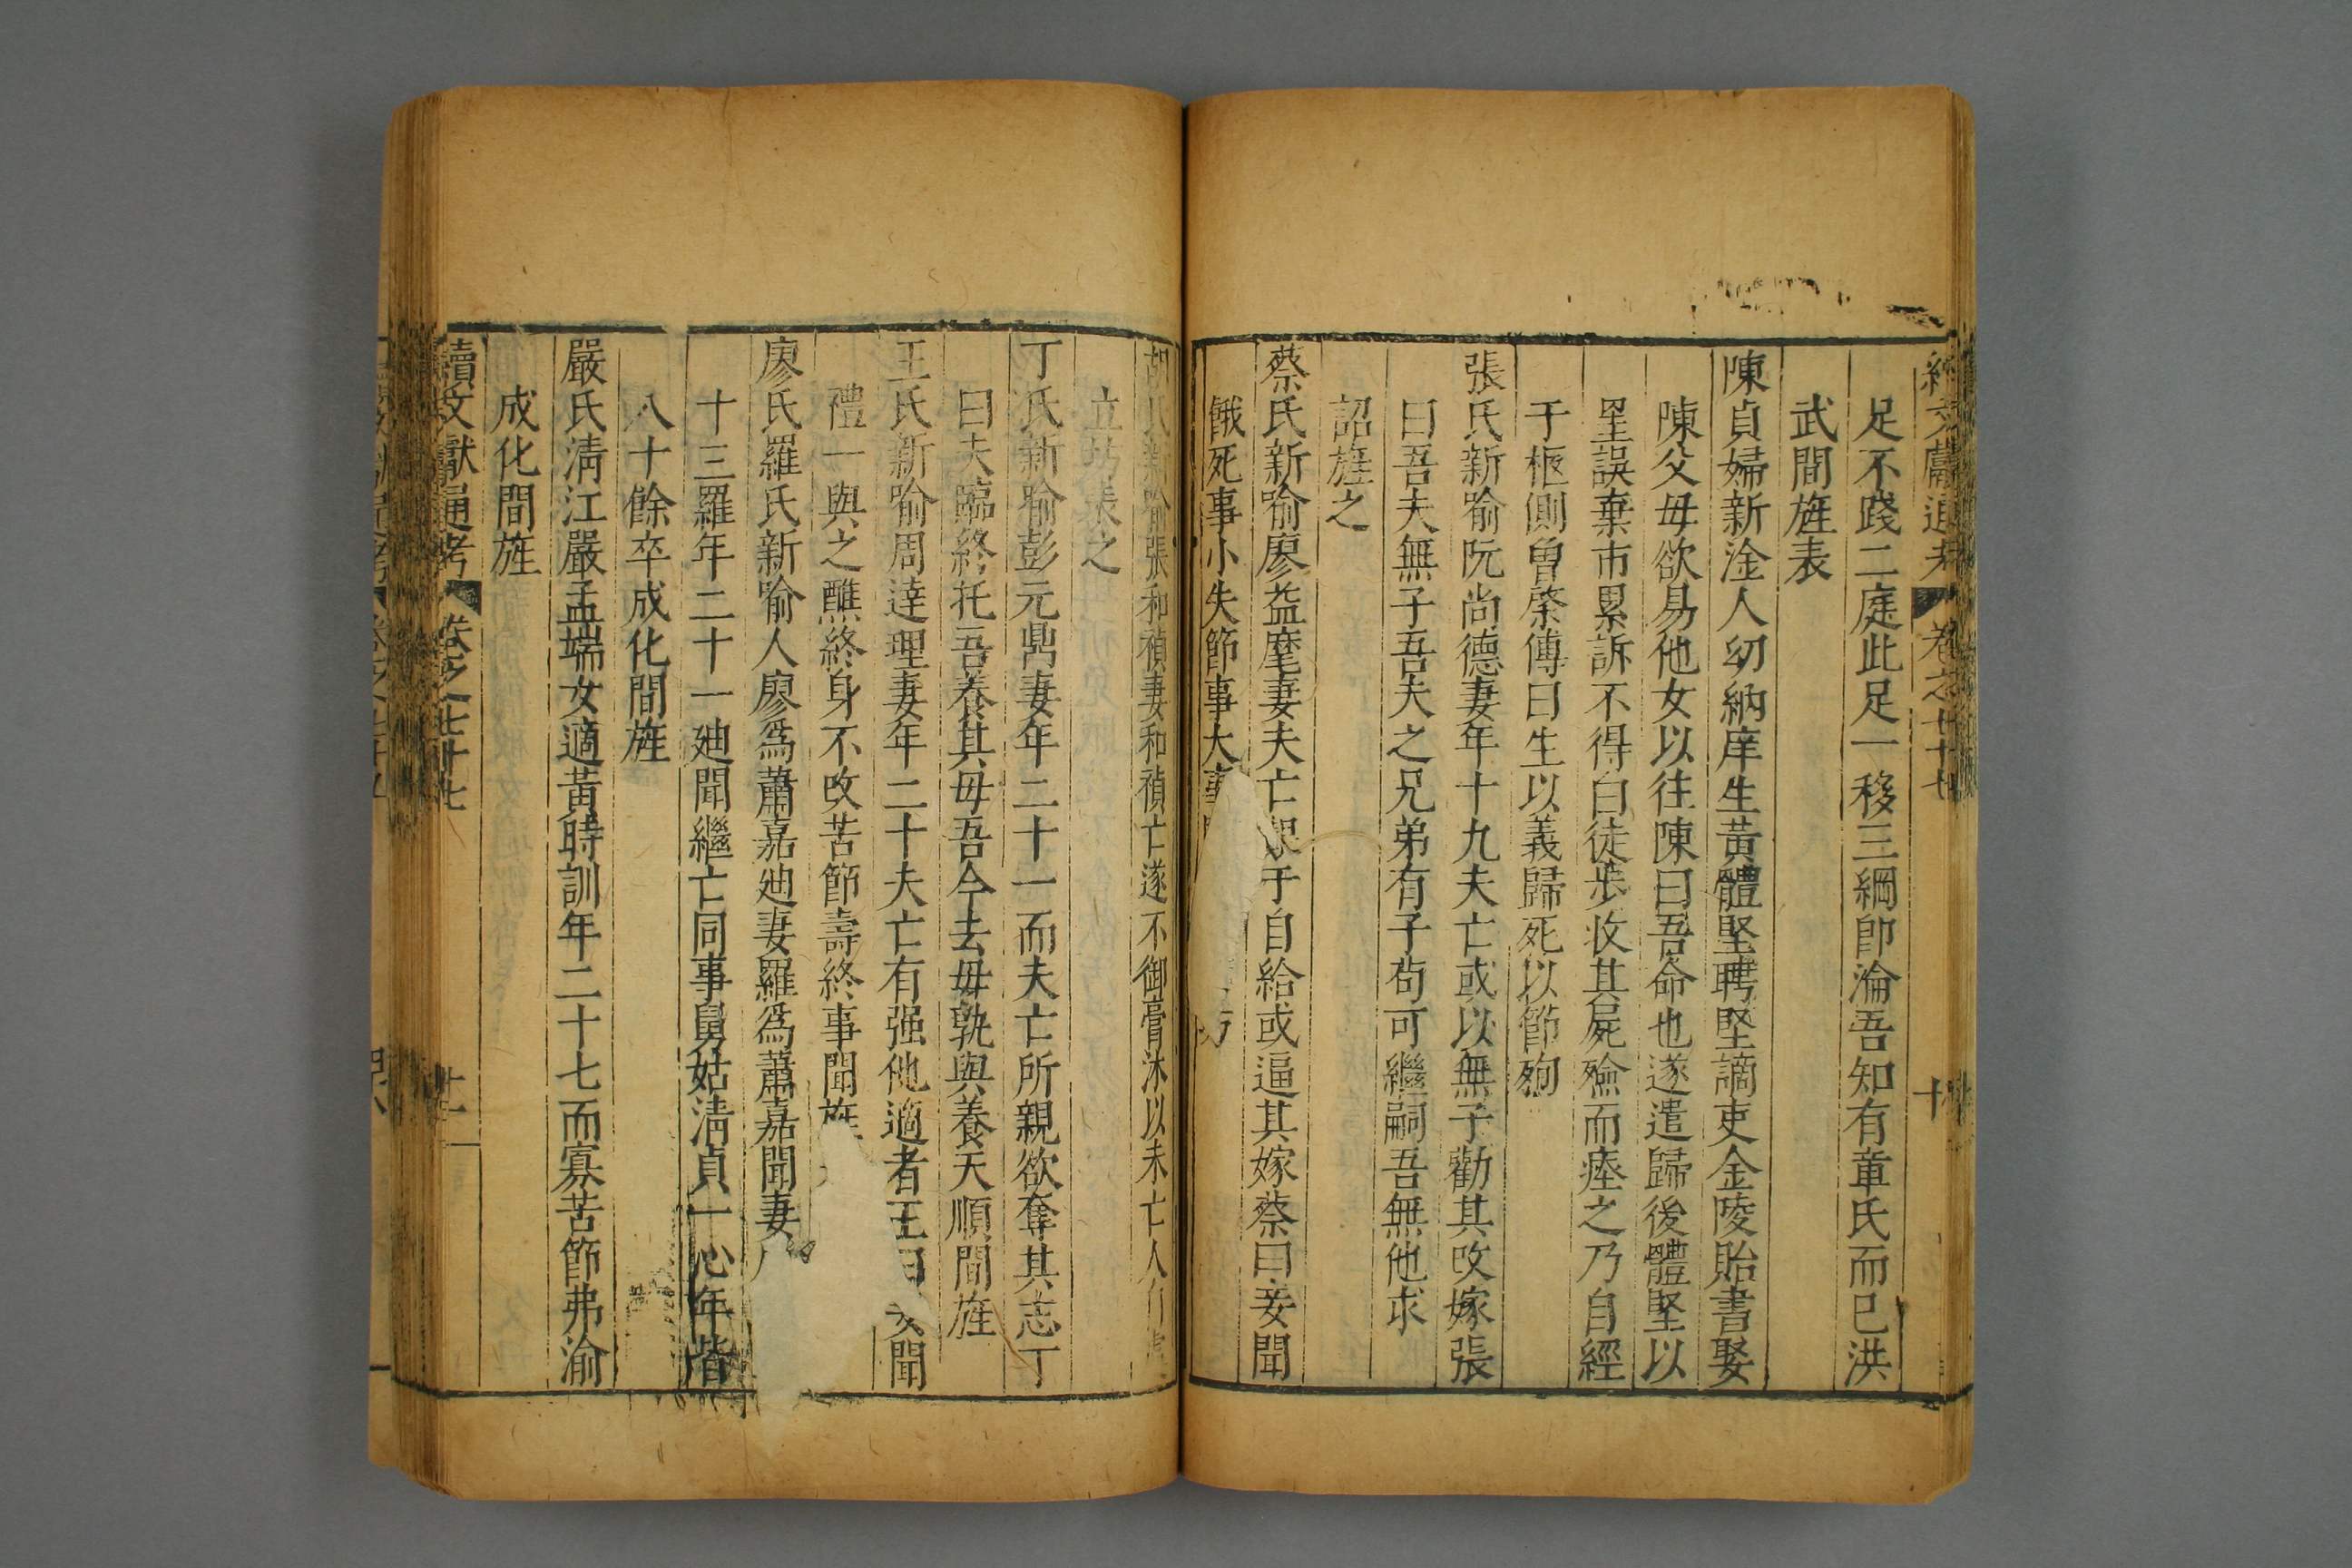 續文獻通考 卷之七十七 十
足不踐二庭此足一移三綱卽淪吾知有章氏而已洪
武間旌表
陳貞婦新淦人幼納庠生黃體堅聘堅謫吏金陵貽書娶
陳父毋欲易他女以往陳曰吾命也遂遣歸後體堅以
罣誤棄市累訴不得白徒步收其屍殮而瘞之乃自經
于柩側曾棨傳曰生以義歸死以節殉
張氏新喻阮尚德妻年十九夫亡或以無子勸其改嫁張
曰吾夫無子吾夫之兄弟有子苟可繼嗣吾無他求
詔旌之
蔡氏新喻廖益麾妻夫亡 于自給或逼其嫁蔡曰妾聞
餓死事小失節事大
胡氏新喻張和禎妻和禎亡遂不御膏沐以未亡人自
立 表之
丁氏新喻彭元鼎妻年二十一而夫亡所親欲奪其志丁
曰夫臨終托吾養其毋吾今去毋孰與養天順間旌
王氏新喻周達理妻年二十夫亡有强他適者王曰 聞
禮一與之醮終身不改苦節壽終事聞旌
廖氏羅氏新喻人廖爲蕭嘉廸妻羅爲蕭嘉聞妻
十三羅年二十一廸聞繼亡同事舅姑淸貞一心年皆
八十餘卒成化間旌
嚴氏淸江嚴孟端女適黃時訓年二十七而寡苦節弗渝
成化間旌
續文獻通考 卷之七十七 十一